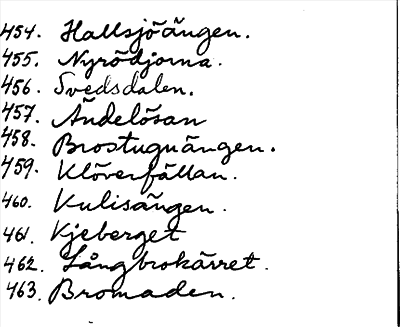 454. Hallsjöängen.
455. Nyrödjorna.
456. Svedsdalen.
457. Ändelösan
458. Brostuguängen.
459. Klöverfällan.
460. Kulisängen.
461. Kjeberget
462. Långbrokärret.
463. Bromaden.